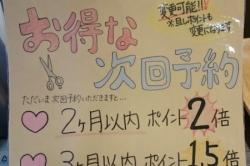 変更可能!!
※但しポイントも
変更になります
お得な
次回予約
ただいま次回予約いただきますと…
2ヶ月以内 ポイント2倍
3ヶ月以内 ポイント1.5倍